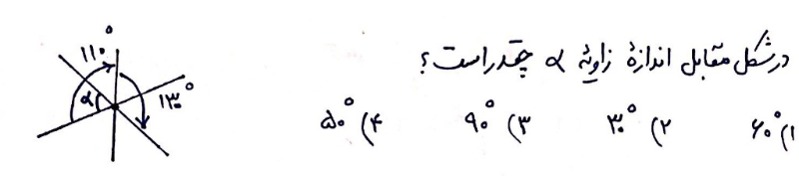 در شکل مقابل اندازهٔ زاویهٔ α چقدر است؟
۱) ۶۰° ۲) ۳۰° ۳) ۹۰° ۴) ۵۰°
۱۱۰°
α ۱۳۰°